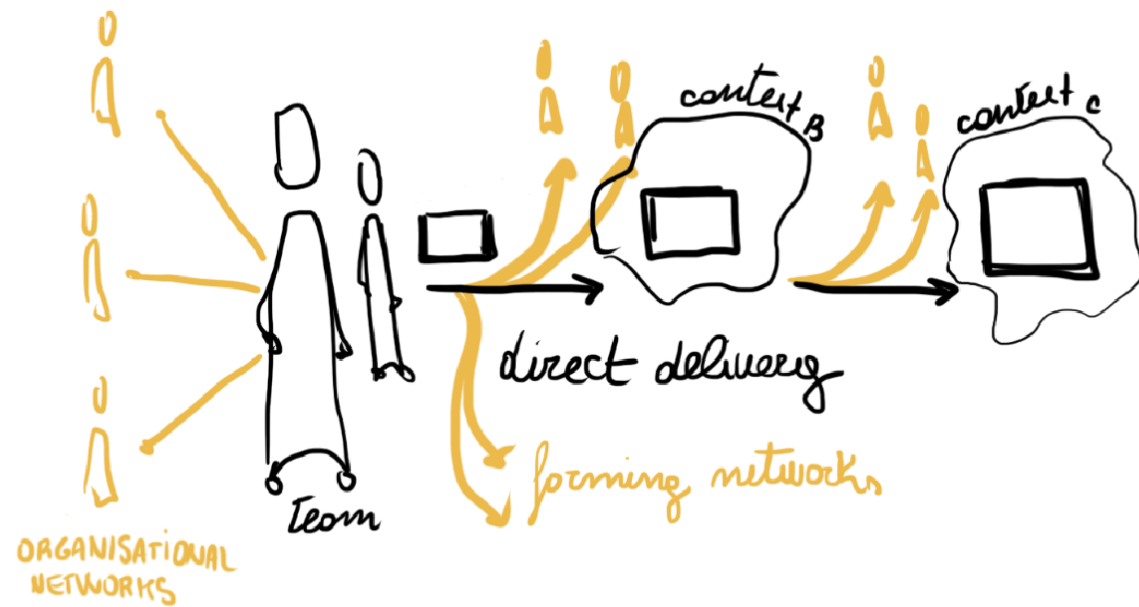 context B
context C
direct delivery
forming networks
Team
ORGANISATIONAL
NETWORKS